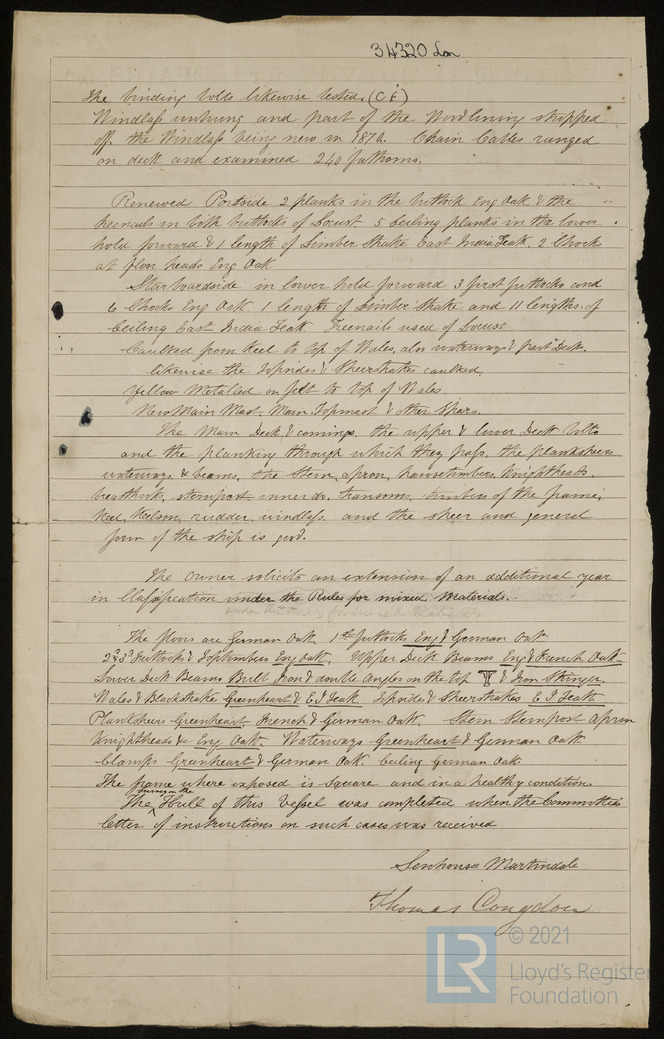 34320 Lon
The binding bolts likewise tested. (C.F.)
Windlass unhung and part of the Wood lining stripped
off. the Windlass being new in 1870. Chain Cables ranged
on deck and examined 240 fathoms.
Renewed Portside 2 planks in the buttock Eng Oak & the
treenails in both buttocks of Locust. 5 Ceiling planks in the lower
hold forward & 1 length of Limber Strake East India Teak. 2 Chocks
at floor heads Eng Oak
Starboardside in lower hold forward 3 first futtocks and
6 Chocks Eng Oak. 1 length of Limber Strake and 11 lengths of
Ceiling East India Teak Treenails used of Locust
Caulked from Keel to top of Wales, also waterways & part Deck.
likewise the Topsides & Sheerstrakes caulked.
Yellow Metalled on felt to top of Wales
New Main Mast. Main Topmast & other Spars.
The Main Deck & comings, the upper & lower Deck bolts
and the planking through which they pass, the planksheers
waterways & beams, the Stem, apron, hawsetimbers, Knightheads,
breasthooks, sternpost inner do. transoms, timbers of the frame,
Keel, Keelson, rudder windlass. and the sheer and general
form of the ship is good.
The owner solicits an extension of an additional year
in Classification under the Rules for mixed Materials.
The floors are German Oak 1st futtocks Eng & German Oak
2nd & 3rd Futtocks & Toptimbers Eng Oak. Upper Deck Beams Eng & French Oak
Lower Deck Beams Built Iron & double Angles on the top & Iron Stringer.
Wales & Blackstrakes Greenheart & E I Teak. Topsides & Sheerstrakes E I Teak
Planksheers Greenheart, French & German Oak. Stem Sternpost Apron
Knightheads &c Eng Oak. Waterways Greenheart & German Oak
Clamps Greenheart & German Oak. Ceiling German Oak
The frame where exposed is Square and in a healthy condition.
The survey on the Hull of this Vessel was completed when the Committee's
letter of instructions on such cases was received
Senhouse Martindale
Thomas Congdon
LR © 2021
Lloyd's Register
Foundation